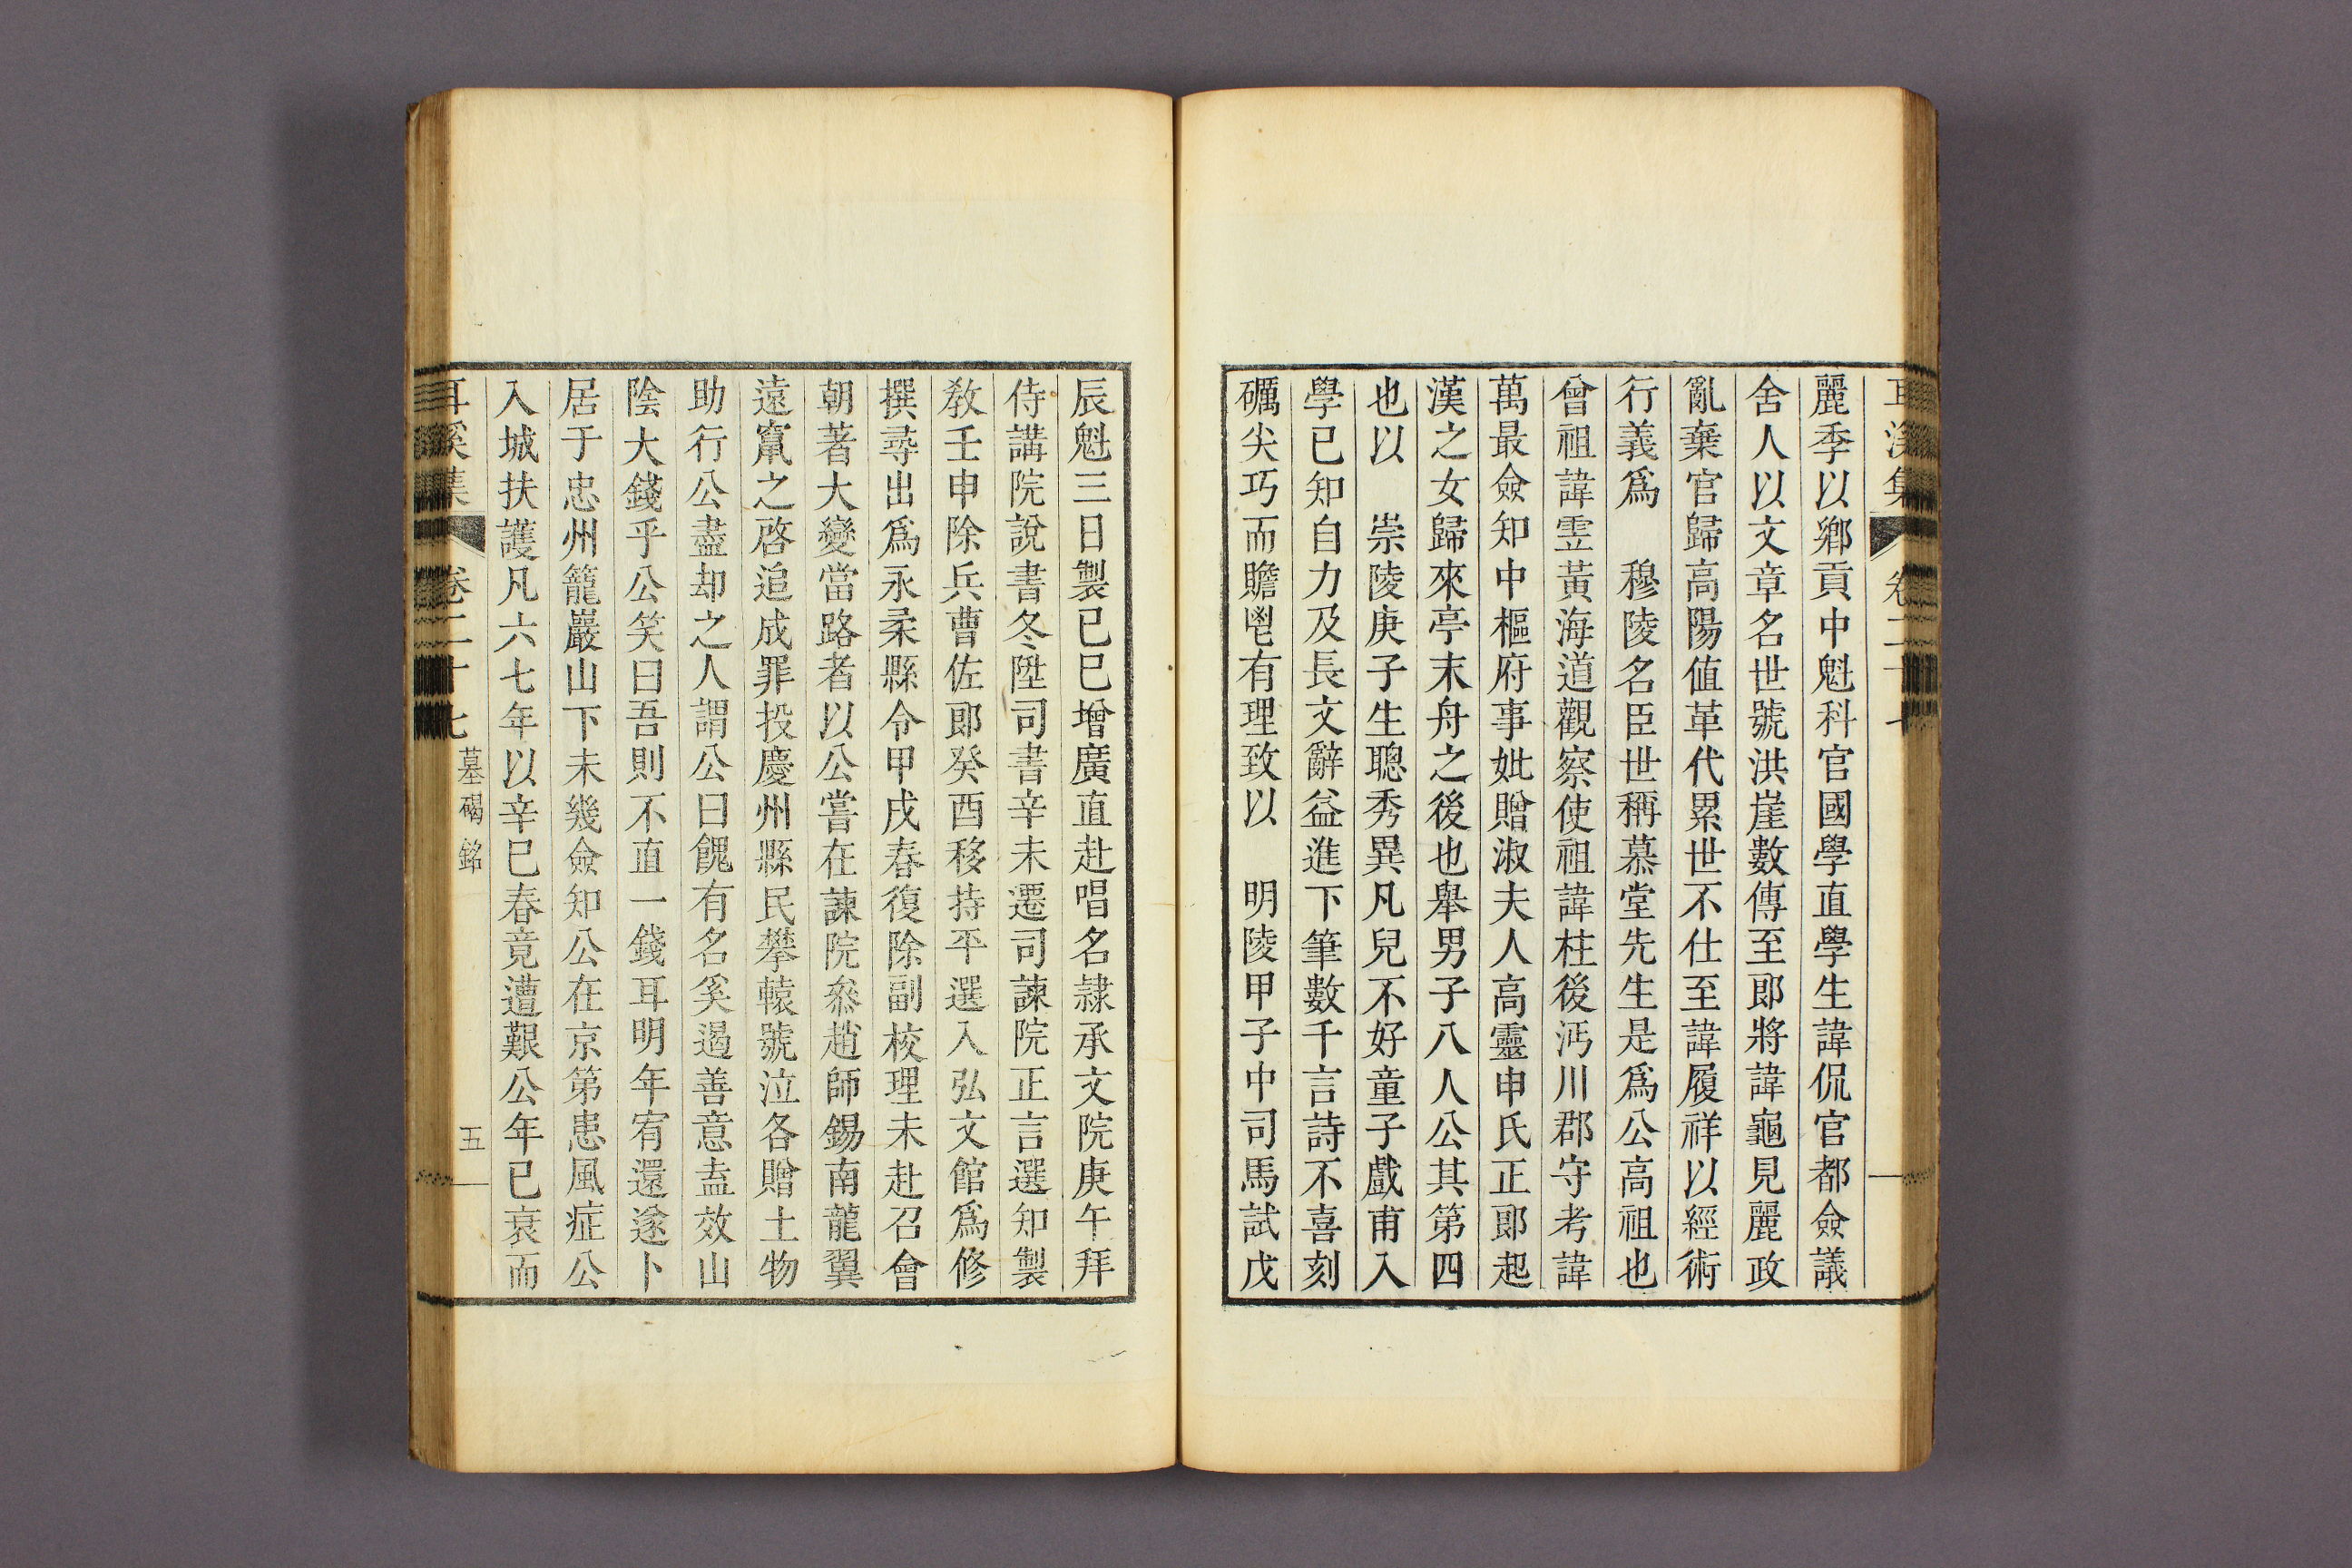 耳溪集 卷二十七
麗季以鄉貢中魁科官國學直學生諱侃官都僉議
舍人以文章名世號洪崖數傳至郎將諱龜見麗政
亂棄官歸高陽值革代累世不仕至諱履祥以經術
行義爲 穆陵名臣世稱慕堂先生是爲公高祖也
曾祖諱霙黃海道觀察使祖諱柱後沔川郡守考諱
萬最僉知中樞府事妣贈淑夫人高靈申氏正郎起
漢之女歸來亭末舟之後也舉男子八人公其第四
也以 崇陵庚子生聰秀異凡兒不好童子戲甫入
學已知自力及長文辭益進下筆數千言詩不喜刻
礪尖巧而贍鬯有理致以 明陵甲子中司馬試戊
辰魁三日製己巳增廣直赴唱名隷承文院庚午拜
侍講院說書冬陞司書辛未遷司諫院正言選知製
教壬申除兵曹佐郎癸酉移持平選入弘文館爲修
撰尋出爲永柔縣令甲戌春復除副校理未赴召會
朝著大變當路者以公嘗在諫院叅趙師錫南龍翼
遠竄之啓追成罪投慶州縣民攀轅號泣各贈土物
助行公盡却之人謂公曰餽有名奚遏善意盍效山
陰大錢乎公笑曰吾則不直一錢耳明年宥還遂卜
居于忠州籠巖山下未幾僉知公在京第患風症公
入城扶護凡六七年以辛巳春竟遭艱公年已衰而
耳溪集 卷二十七 墓碣銘 五